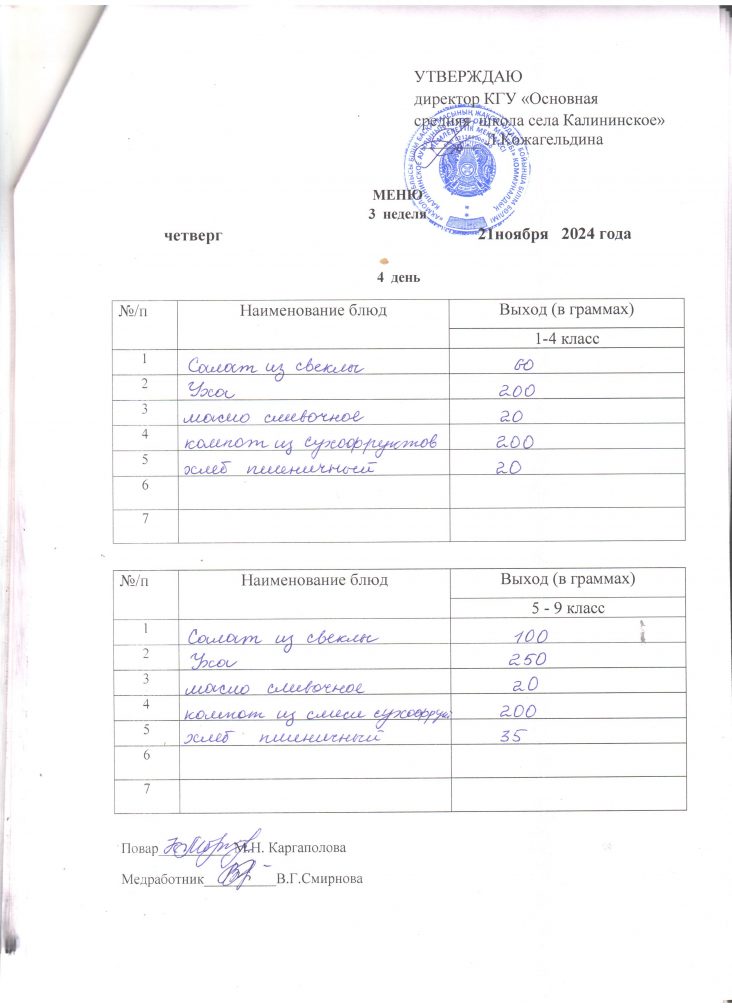 УТВЕРЖДАЮ
директор КГУ «Основная
средняя школа села Калининское»
Л.Кожагельдина
МЕНЮ
3 неделя
четверг 21ноября 2024 года
4 день
№/п Наименование блюд Выход (в граммах)
1-4 класс
1 Салат из свеклы 60
2 Уха 200
3 масло сливочное 20
4 компот из сухофруктов 200
5 хлеб пшеничный 20
6
7
№/п Наименование блюд Выход (в граммах)
5 - 9 класс
1 Салат из свеклы 100
2 Уха 250
3 масло сливочное 20
4 компот из смеси сухофрук 200
5 хлеб пшеничный 35
6
7
Повар__________М.Н. Каргаполова
Медработник__________В.Г.Смирнова